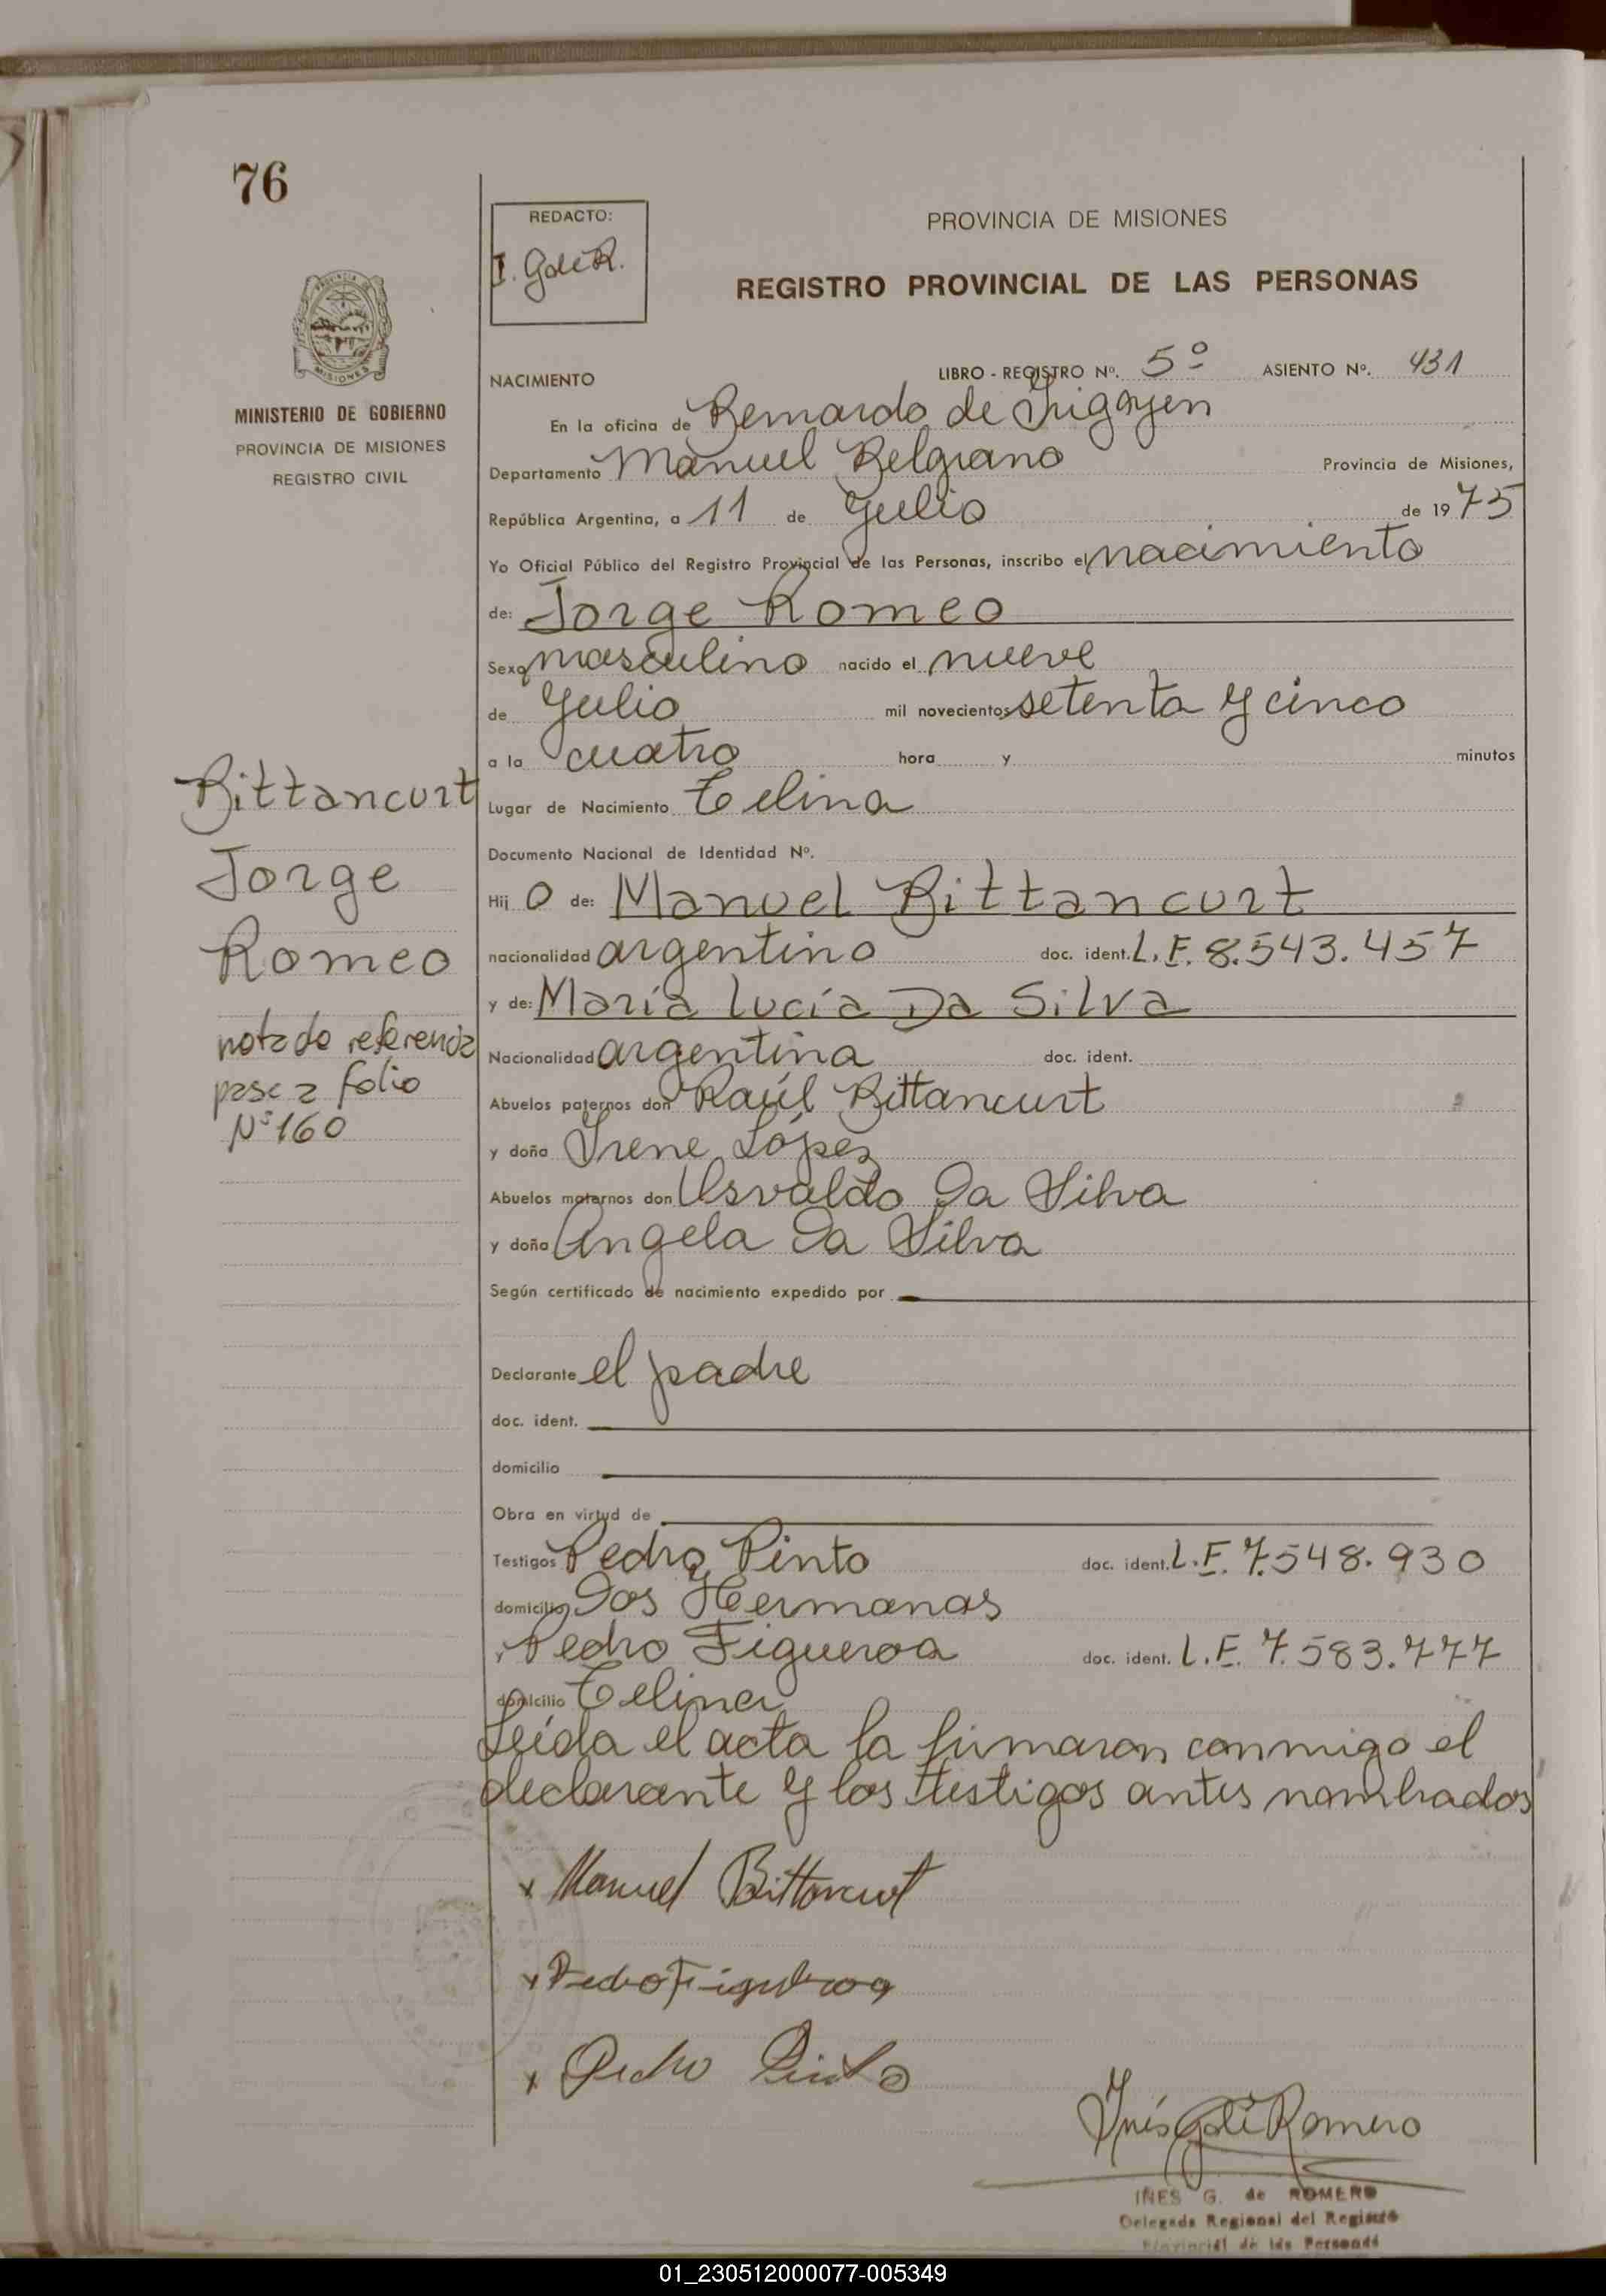 76
REDACTO:
I. G. de R.
PROVINCIA DE MISIONES
REGISTRO PROVINCIAL DE LAS PERSONAS
MISIONES
MINISTERIO DE GOBIERNO
PROVINCIA DE MISIONES
REGISTRO CIVIL
NACIMIENTO
LIBRO - REGISTRO Nº. 5º ASIENTO Nº. 431
En la oficina de Bernardo de Irigoyen
Departamento Manuel Belgrano Provincia de Misiones,
República Argentina, a 11 de Julio de 1975
Yo Oficial Público del Registro Provincial de las Personas, inscribo el nacimiento
de: Jorge Romeo
Sexo masculino nacido el nueve
de Julio mil novecientos setenta y cinco
a la cuatro hora y minutos
Lugar de Nacimiento Celina
Documento Nacional de Identidad Nº.
Hijo de: Manuel Bittancurt
nacionalidad argentino doc. ident. L.E. 8.543.457
y de: María Lucía Da Silva
Nacionalidad argentina doc. ident.
Abuelos paternos don Raúl Bittancurt
y doña Irene López
Abuelos maternos don Osvaldo Da Silva
y doña Angela Da Silva
Según certificado de nacimiento expedido por
Declarante el padre
doc. ident.
domicilio
Obra en virtud de
Testigos Pedro Pinto doc. ident. L.E. 7.548.930
domicilio Dos Hermanas
y Pedro Figueroa doc. ident. L.E. 7.583.777
domicilio Celina
Leída el acta la firmaron conmigo el
declarante y los testigos antes nombrados
Bittancurt
Jorge
Romeo
nota de referencia
pase a folio
Nº 160
x Manuel Bittancurt
x Pedro Figueroa
x Pedro Pinto
Inés G. de Romero
INES G. de ROMERO
Delegada Regional del Registro
Provincial de las Personas
01_230512000077-005349